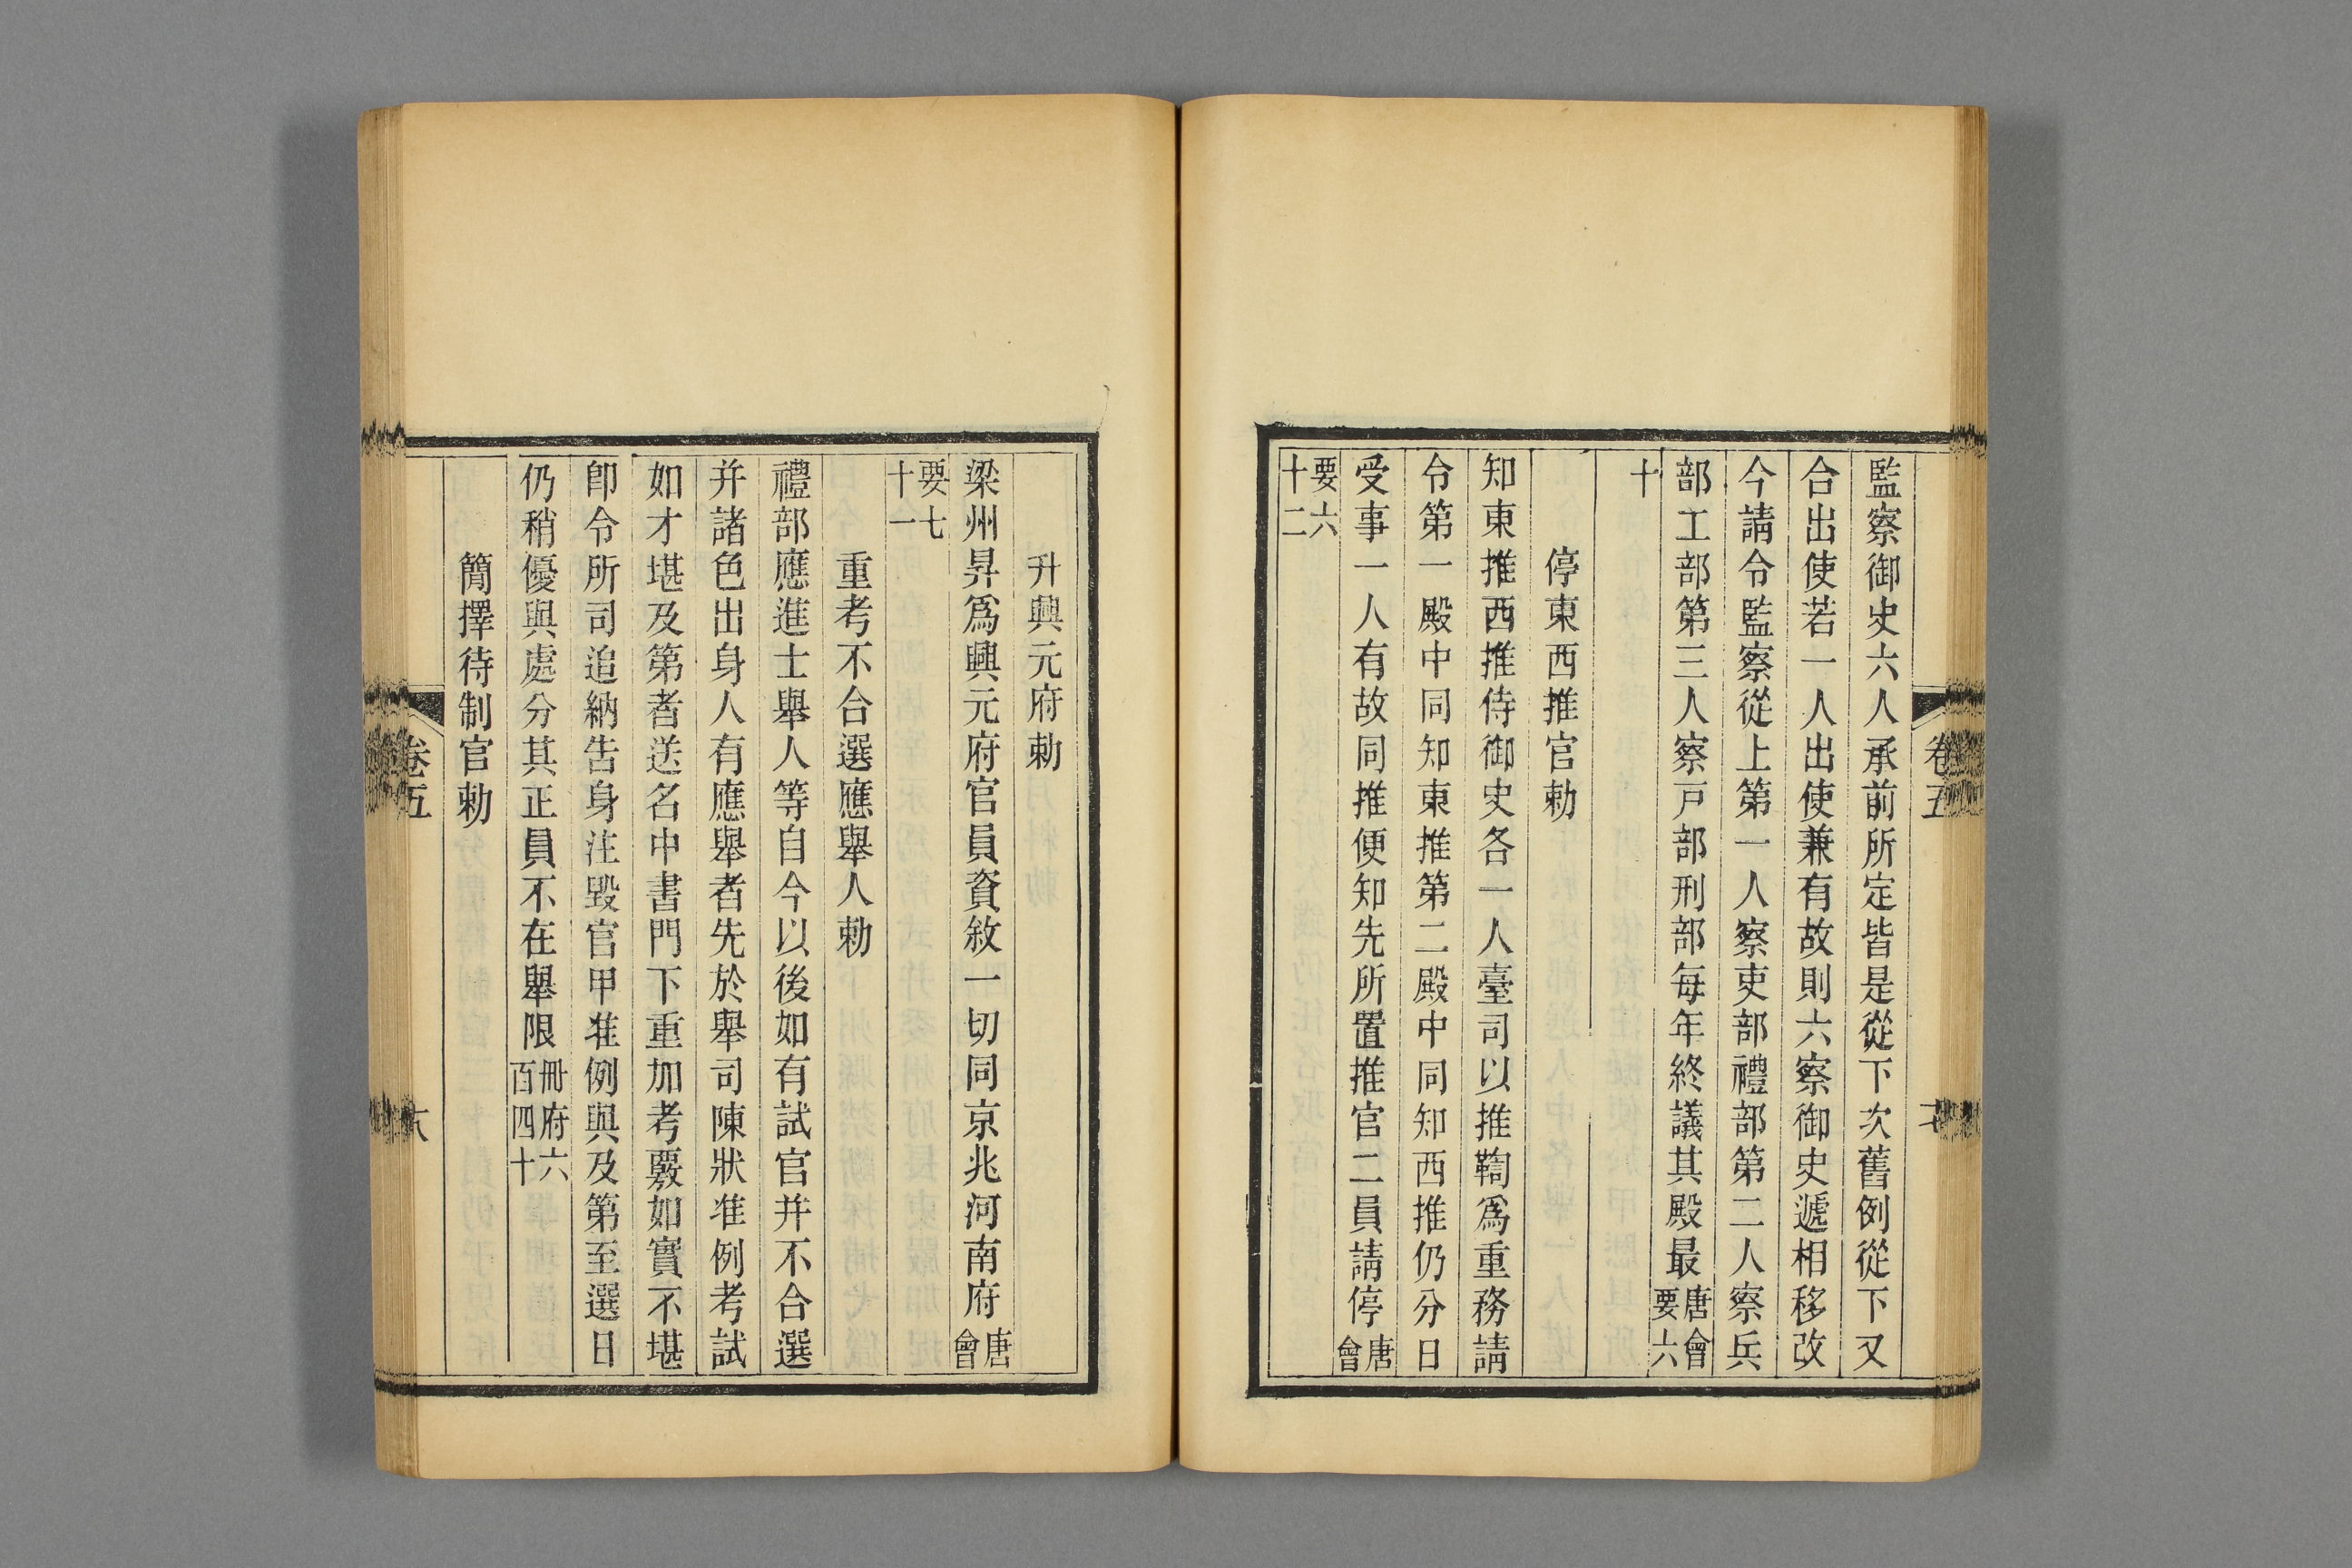 監察御史六人承前所定皆是從下次舊例從下又
合出使若一人出使兼有故則六察御史遞相移改
今請令監察從上第一人察吏部禮部第二人察兵
部工部第三人察戸部刑部每年終議其殿最唐會要六
十
停東西推官勅
知東推西推侍御史各一人臺司以推鞫爲重務請
令第一殿中同知東推第二殿中同知西推仍分日
受事一人有故同推便知先所置推官二員請停唐會
要六十二
升興元府勅
梁州昇爲興元府官員資敘一切同京兆河南府唐會
要七十一
重考不合選應舉人勅
禮部應進士舉人等自今以後如有試官并不合選
并諸色出身人有應舉者先於舉司陳狀准例考試
如才堪及第者送名中書門下重加考覈如實不堪
卽令所司追納告身注毀官甲准例與及第至選日
仍稍優與處分其正員不在舉限冊府六百四十
簡擇待制官勅
卷五